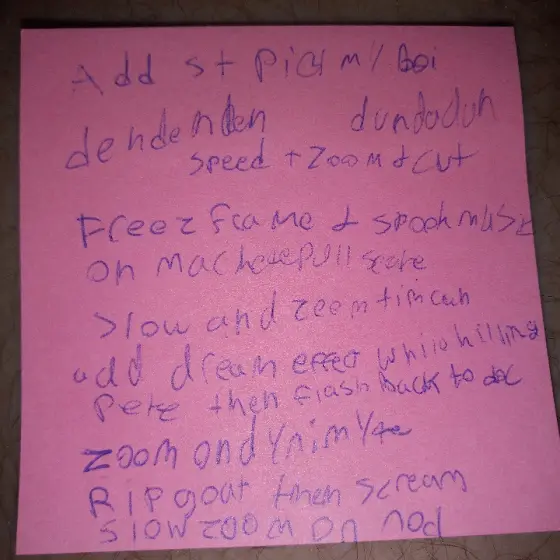 Add st pict my boi
dendenden dundaduh
speed + zoom + cut
Freez frame + spook music
on machete pull scare
slow and zoom tim can
add dream effect while killing
Pete then flash back to doc
zoom on dynimyte
RIP goat then scream
slow zoom on nod